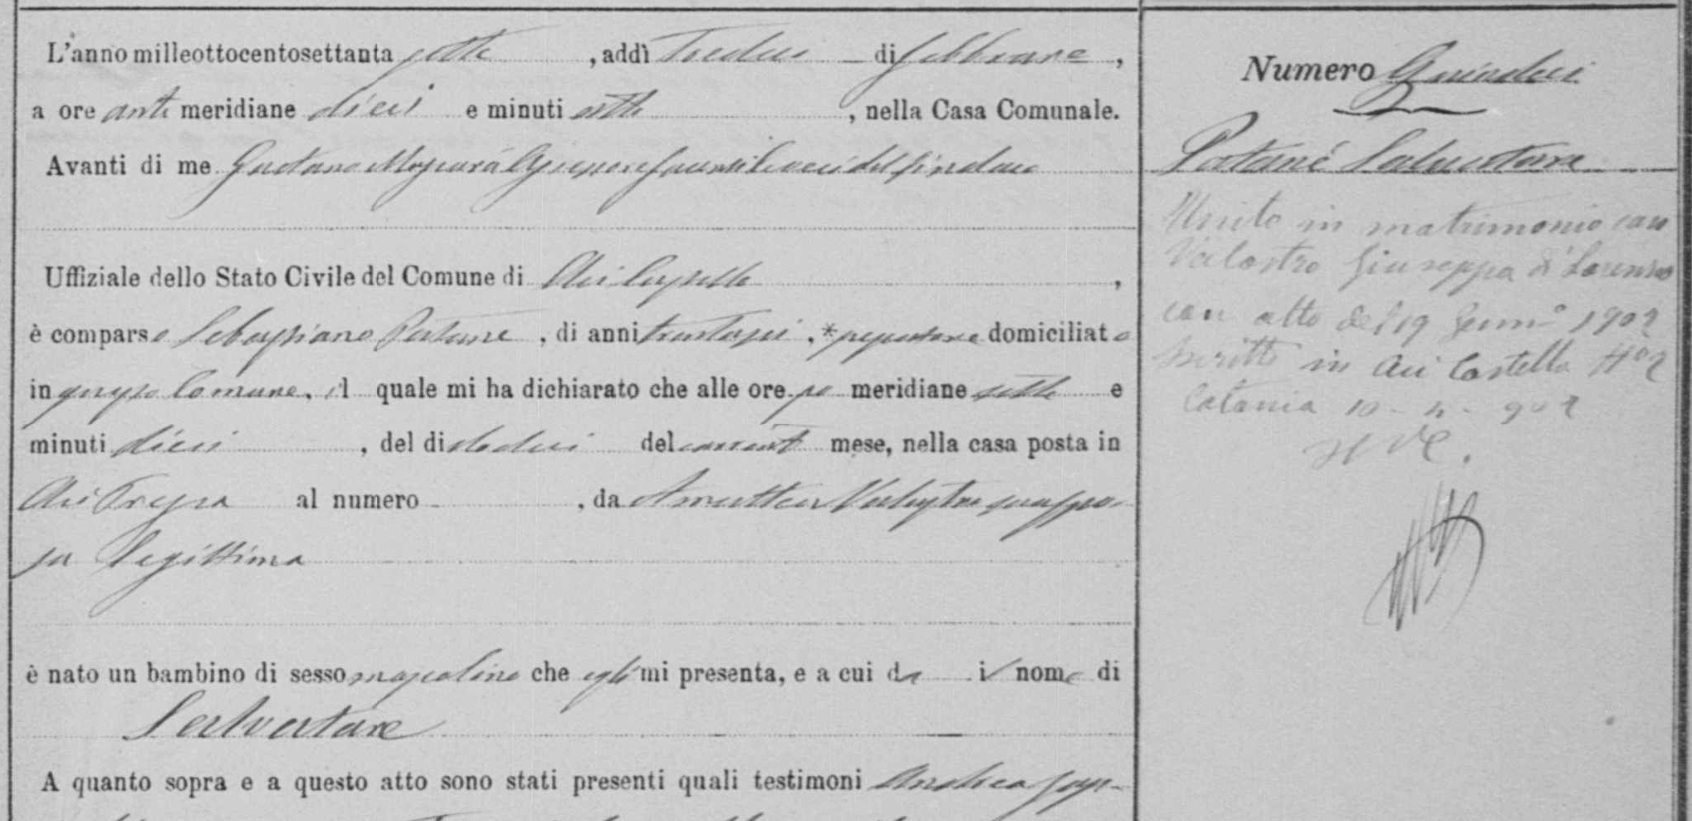 L'anno milleottocentosettanta sette, addì Tredici di febbraro,
a ore anti meridiane dieci e minuti sette, nella Casa Comunale.
Avanti di me Gaetano del Sindaco
Uffiziale dello Stato Civile del Comune di Aci Castello,
è comparso Sebastiano Patane, di anni trentasei, * domiciliato
in questo Comune, il quale mi ha dichiarato che alle ore po meridiane sette e
minuti dieci, del dì dodici del corrente mese, nella casa posta in
Aci Trezza al numero, da Valastro sua spo-
sa legittima
è nato un bambino di sesso mascolino che egli mi presenta, e a cui dà il nome di
Salvatore
A quanto sopra e a questo atto sono stati presenti quali testimoni Andrea
Numero Quindici
Patané Salvatore
Unito in matrimonio con
Valastro Giuseppa di Lorenzo
con atto del 19 1902
iscritto in Aci Castello
Catania 10 - 902